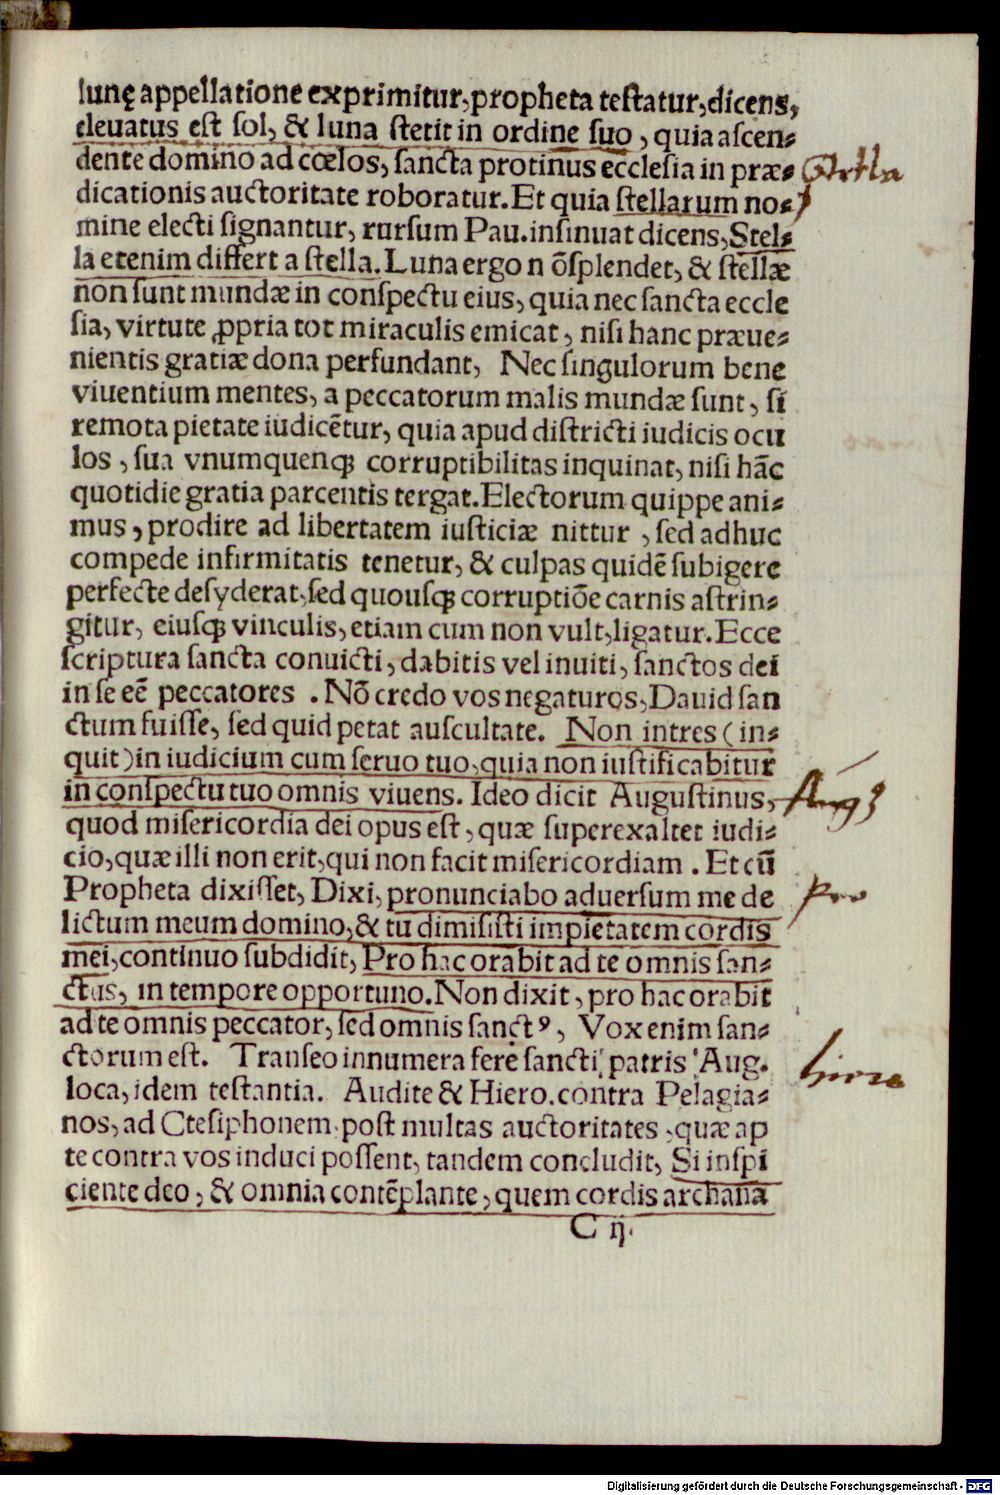 lunę appellatione exprimitur, propheta testatur, dicens,
eleuatus est sol, & luna stetit in ordine suo, quia ascen-
dente domino ad cœlos, sancta protinus ecclesia in præ-
dicationis auctoritate roboratur. Et quia stellarum no-
Stella
mine electi signantur, rursum Pau. insinuat dicens, Stel-
la etenim differt a stella. Luna ergo n õsplendet, & stellæ
non sunt mundæ in conspectu eius, quia nec sancta eccle
sia, virtute ꝓpria tot miraculis emicat, nisi hanc præue-
nientis gratiæ dona perfundant, Nec singulorum bene
viuentium mentes, a peccatorum malis mundæ sunt, si
remota pietate iudicẽtur, quia apud districti iudicis ocu
los, sua vnumquenqꝫ corruptibilitas inquinat, nisi hãc
quotidie gratia parcentis tergat. Electorum quippe ani-
mus, prodire ad libertatem iusticiæ nittur, sed adhuc
compede infirmitatis tenetur, & culpas quidẽ subigere
perfecte desyderat, sed quousqꝫ corruptiõe carnis astrin-
gitur, eiusqꝫ vinculis, etiam cum non vult, ligatur. Ecce
scriptura sancta conuicti, dabitis vel inuiti, sanctos dei
in se eẽ peccatores . Nõ credo vos negaturos, Dauid san
ctum fuisse, sed quid petat auscultate. Non intres (in-
quit) in iudicium cum seruo tuo, quia non iustificabitur
in conspectu tuo omnis viuens. Ideo dicit Augustinus,
Aug
quod misericordia dei opus est, quæ superexaltet iudi-
cio, quæ illi non erit, qui non facit misericordiam . Et cũ
Propheta dixisset, Dixi, pronunciabo aduersum me de
Pro
lictum meum domino, & tu dimisisti impietatem cordis
mei, continuo subdidit, Pro hac orabit ad te omnis san-
ctus, in tempore opportuno. Non dixit, pro hac orabit
ad te omnis peccator, sed omnis sanctꝰ, Vox enim san-
ctorum est. Transeo innumera fere sancti patris Aug.
loca, idem testantia. Audite & Hiero. contra Pelagia-
hiero
nos, ad Ctesiphonem post multas auctoritates, quæ ap
te contra vos induci possent, tandem concludit, Si inspi
ciente deo, & omnia contẽplante, quem cordis archana
C ij.
Digitalisierung gefördert durch die Deutsche Forschungsgemeinschaft - DFG